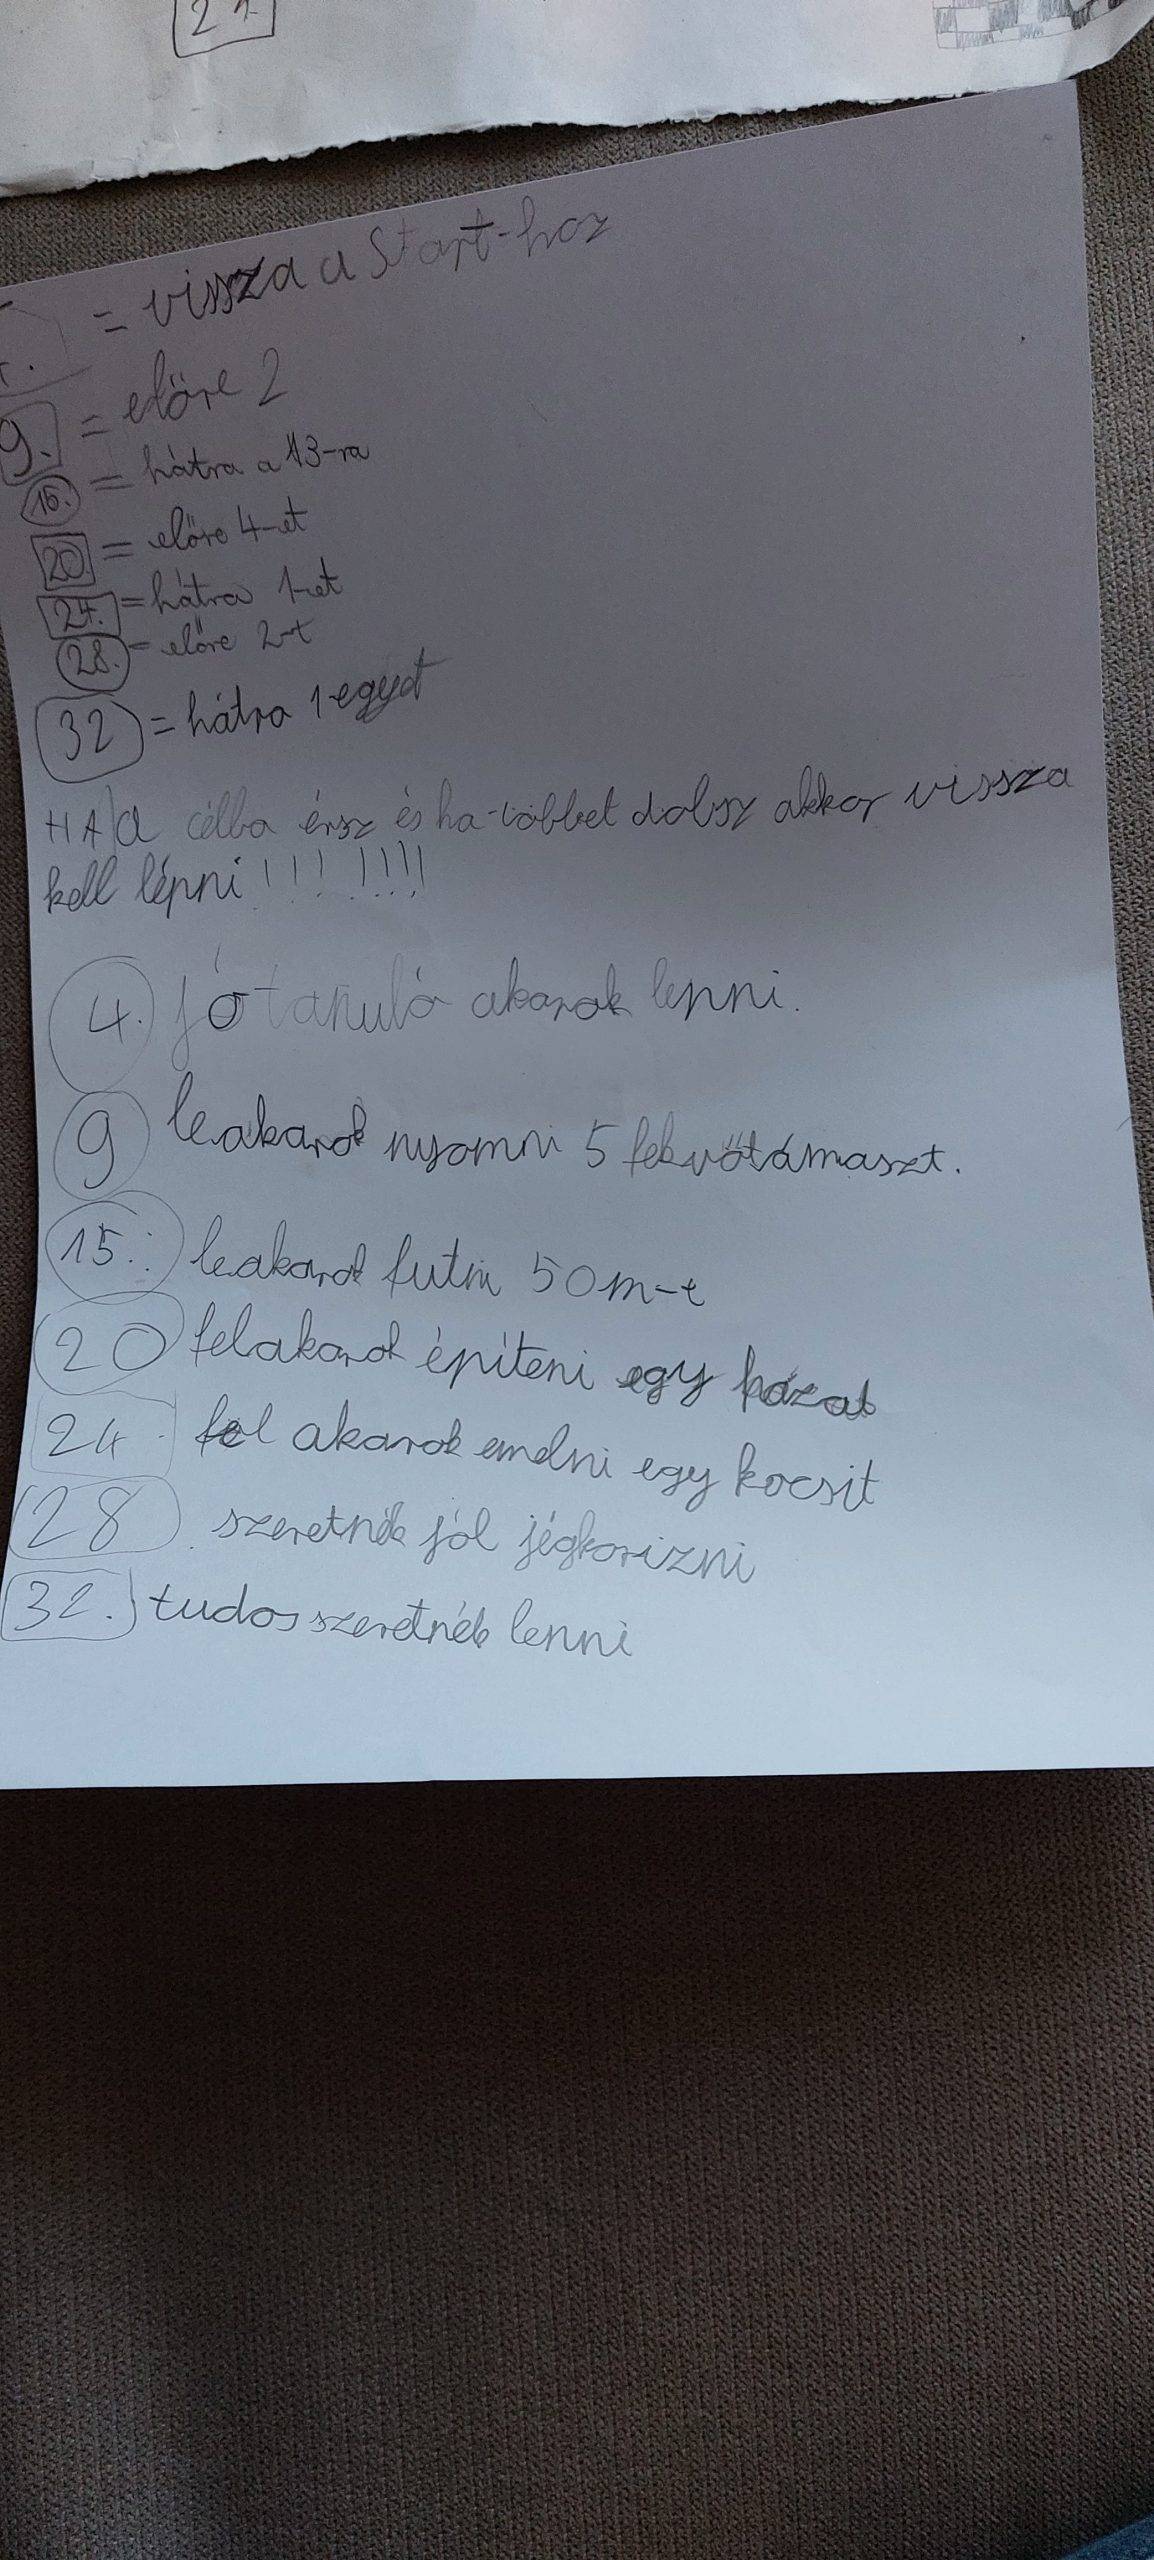 = vissza a Start-hoz
9. = előre 2
= hátra a 13-ra
20. = előre 4-et
24. = hátra 1-et
28. = előre 2-t
32 = hátra 1 egyet
HA a célba érsz és ha többet dobsz akkor vissza
kell lépni!!! !!!!
4. jó tanuló akarok lenni.
9 leakarok nyomni 5 fekvőtámaszt.
15. leakarok futni 50m-t
20 felakarok építeni egy házat
24. fel akarok emelni egy kocsit
28 szeretnék jól jégkorizni
32. tudos szeretnék lenni